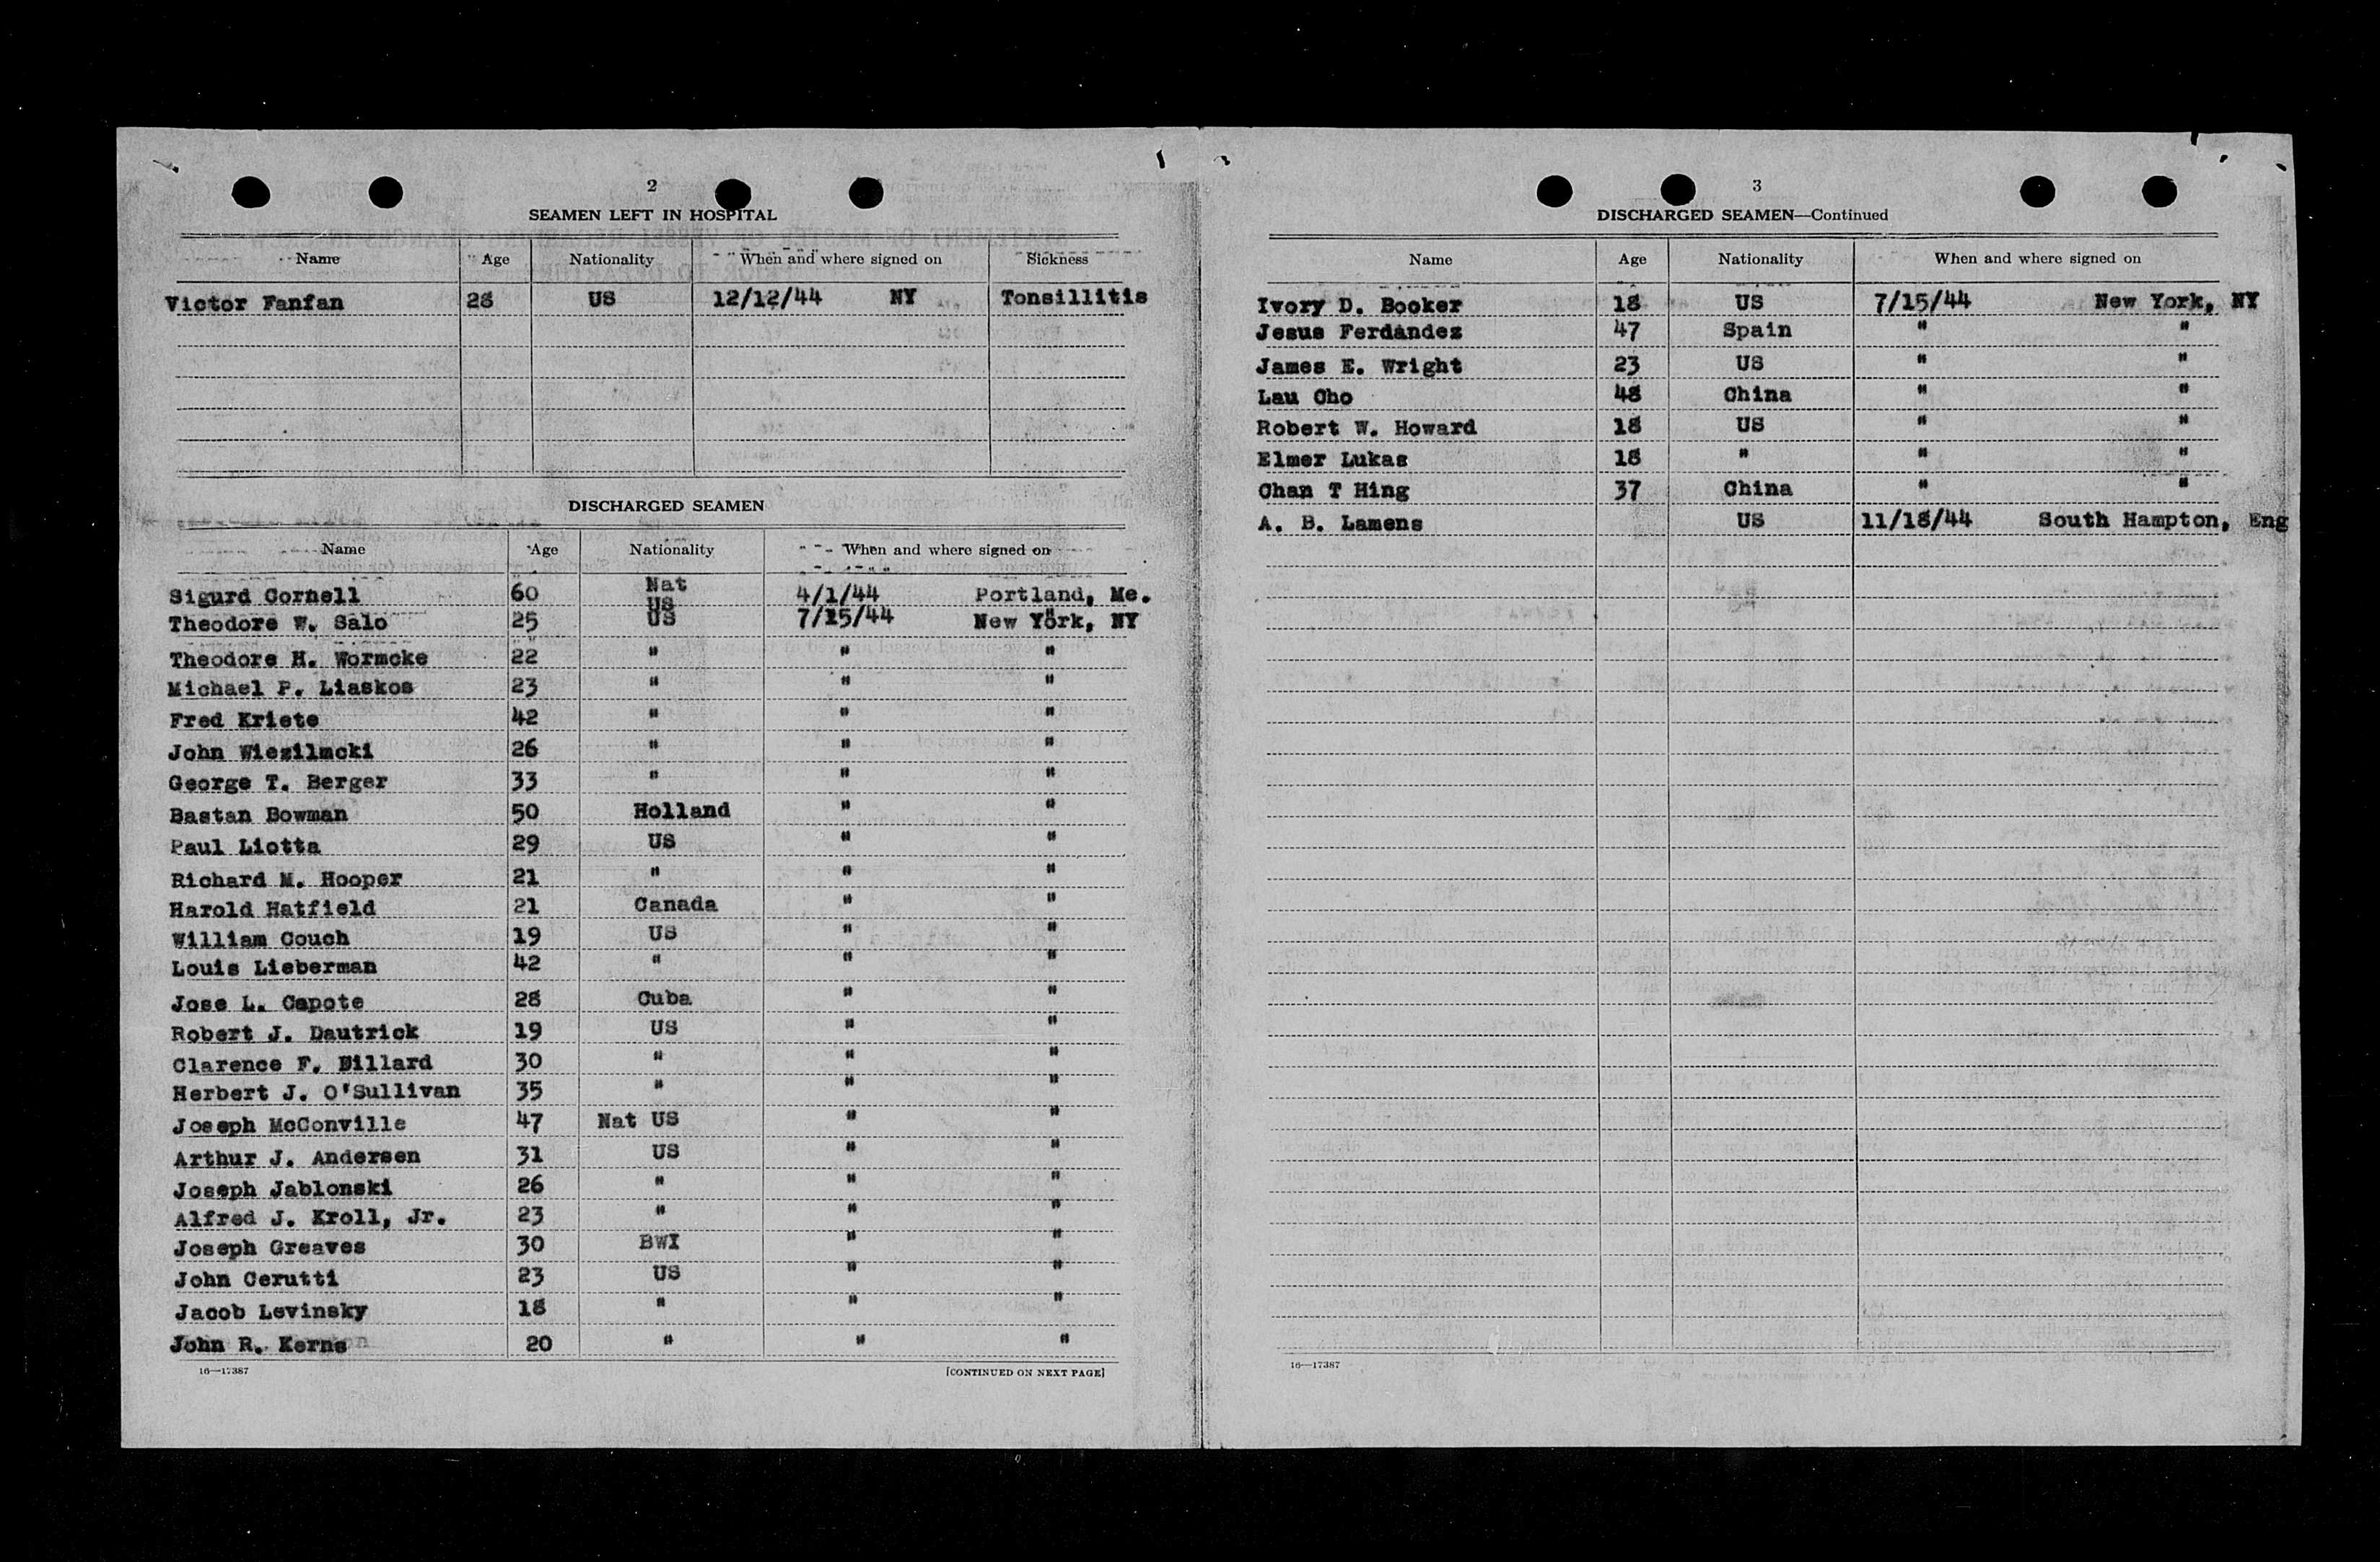 2
SEAMEN LEFT IN HOSPITAL
Name Age Nationality When and where signed on Sickness
Victor Fanfan 28 US 12/12/44 NY Tonsillitis
DISCHARGED SEAMEN
Name Age Nationality When and where signed on
Sigurd Cornell 60 Nat US 4/1/44 Portland, Me.
Theodore W. Salo 25 US 7/15/44 New York, NY
Theodore H. Wormcke 22 " " "
Michael P. Liaskos 23 " " "
Fred Kriete 42 " " "
John Wiezilmcki 26 " " "
George T. Berger 33 " " "
Bastan Bowman 50 Holland " "
Paul Liotta 29 US " "
Richard M. Hooper 21 " " "
Harold Hatfield 21 Canada " "
William Couch 19 US " "
Louis Lieberman 42 " " "
Jose L. Capote 28 Cuba " "
Robert J. Dautrick 19 US " "
Clarence F. Dillard 30 " " "
Herbert J. O'Sullivan 35 " " "
Joseph McConville 47 Nat US " "
Arthur J. Andersen 31 US " "
Joseph Jablonski 26 " " "
Alfred J. Kroll, Jr. 23 " " "
Joseph Greaves 30 BWI " "
John Cerutti 23 US " "
Jacob Levinsky 18 " " "
John R. Kerns 20 " " "
16—17387 [CONTINUED ON NEXT PAGE]
3
DISCHARGED SEAMEN—Continued
Name Age Nationality When and where signed on
Ivory D. Booker 18 US 7/15/44 New York, NY
Jesus Ferdandez 47 Spain " "
James E. Wright 23 US " "
Lau Cho 48 China " "
Robert W. Howard 18 US " "
Elmer Lukas 18 " " "
Chan T Hing 37 China " "
A. B. Lamens US 11/18/44 South Hampton, Eng
16—17387